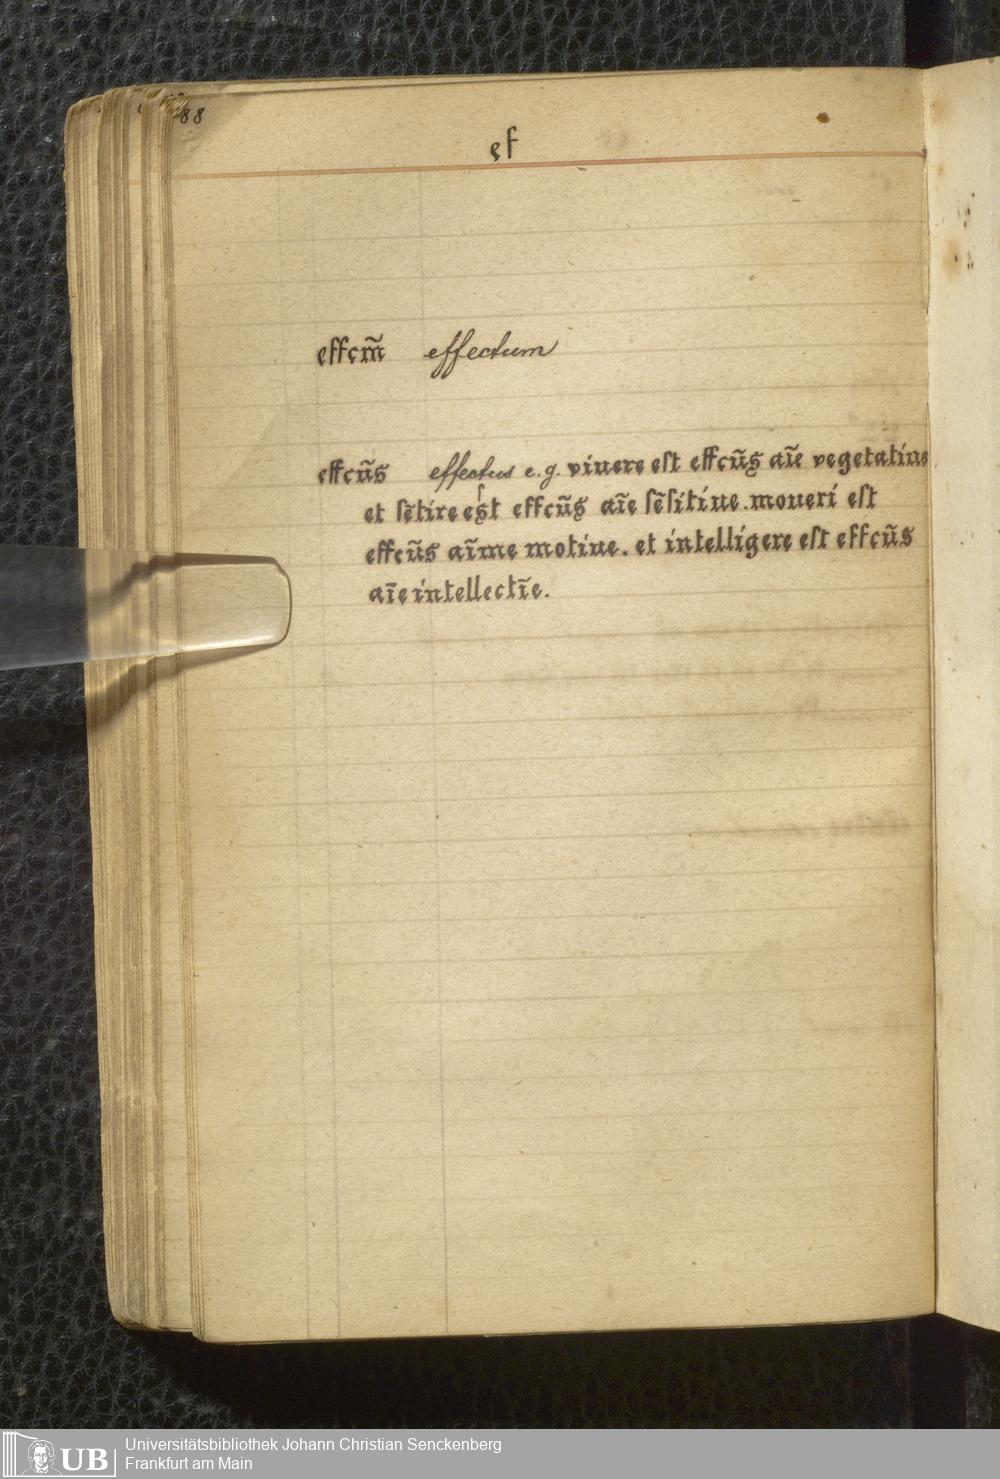 88
ef
effcm̃ effectum
effcũs effectus e.g. viuere est effcũs aĩe vegetatiue
et sẽtire est effcũs aĩe sẽsitiue. moueri est
effcũs aĩme motiue. et intelligere est effcũs
aĩe intellectĩe.
UB
Universitätsbibliothek Johann Christian Senckenberg
Frankfurt am Main